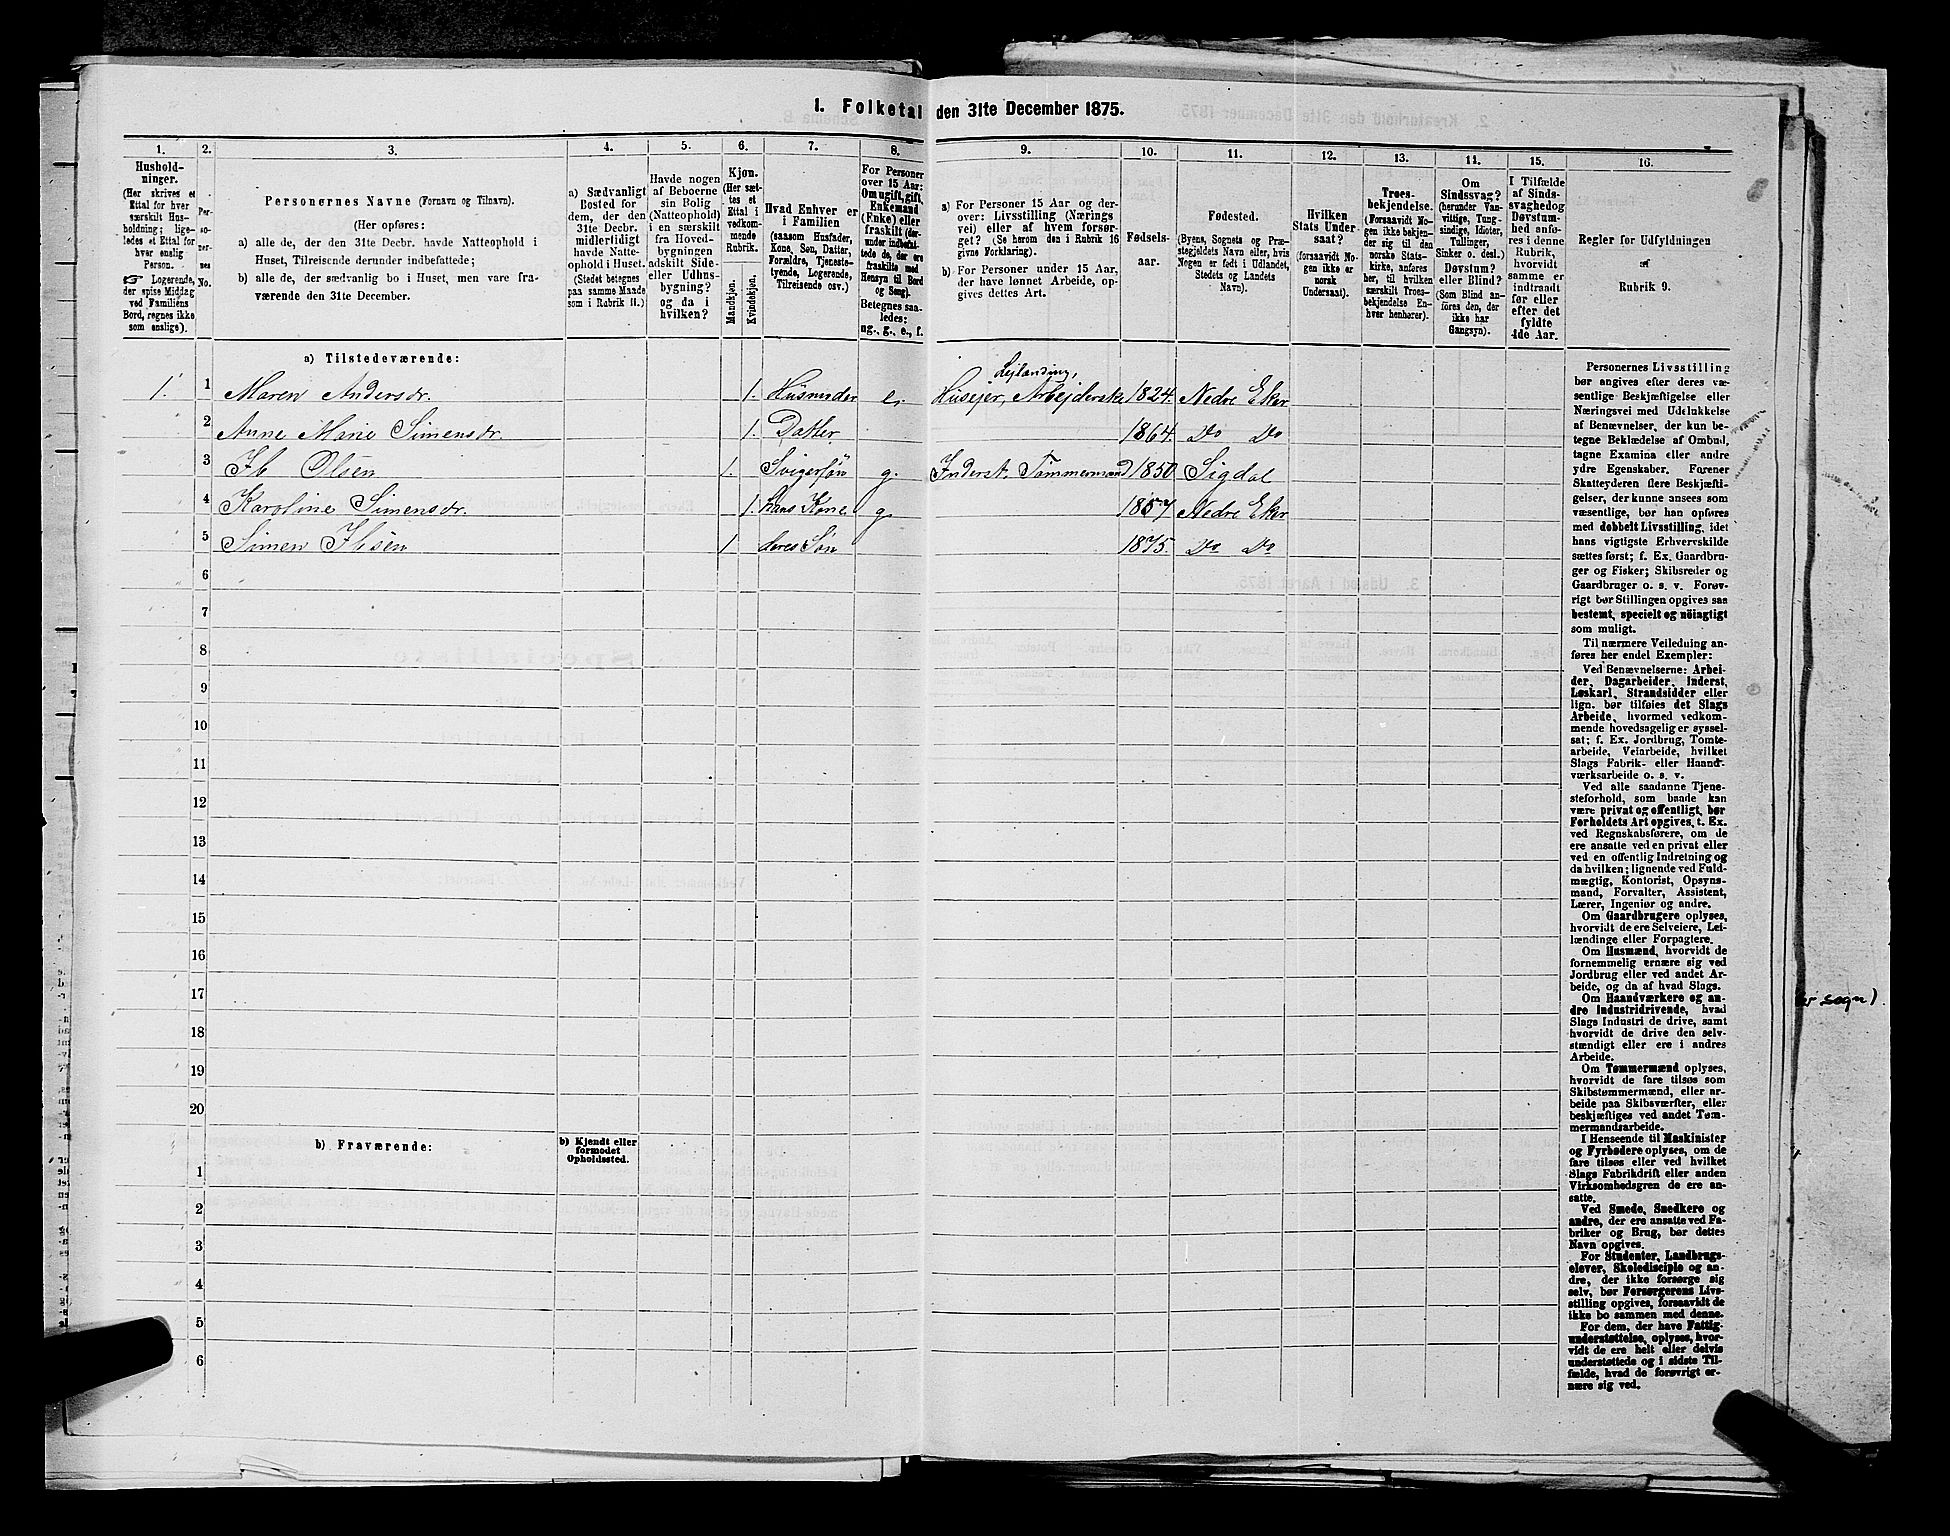 1. Folketal den 31te December 1875.
1. 2. 3. 4. 5. 6. 7. 8. 9. 10. 11. 12. 13. 14. 15. 16.
Hushold-
ninger.
(Her skrives et
Ettal for hver
særskilt Hus-
holdning; lige-
ledes et Ettal for
hver enslig
Person.
☞ Logerende,
der spise Middag
ved Familiens
Bord, regnes ikke
som enslige).
Per-
so-
ner-
nes
No.
Personernes Navne (Fornavn og Tilnavn).
(Her opføres:
a) alle de, der den 31te Decbr. havde Natteophold i
Huset, Tilreisende derunder indbefattede;
b) alle de, der sædvanlig bo i Huset, men vare fra-
værende den 31te December.
a) Sædvanligt
Bosted for
dem, der den
31te Decbr.
midlertidigt
havde Natte-
ophold i Huset.
(Stedet betegnes
paa samme Maade
som i Rubrik 11.)
Havde nogen
af Beboerne
sin Bolig
(Natteophold)
i en særskilt
fra Hoved-
bygningen
adskilt Side-
eller Udhus-
bygning?
og da i
hvilken?
Kjøn.
(Her sæt-
tes et
Ettal i
vedkom-
mende
Rubrik.
Mandkjøn.
Kvindekjøn.
Hvad Enhver er
i Familien
(saasom Husfader,
Kone, Søn, Datter,
Forældre, Tjeneste-
tyende, Logerende,
Tilreisende osv.)
For Personer
over 15 Aar:
Om ugift, gift,
Enkemand
(Enke) eller
fraskilt (der-
under indbefat-
tede de, der ere
fraskilte med
Hensyn til Bord
og Seng).
Betegnes saa-
ledes:
ug., g., e., f.
a) For Personer 15 Aar og der-
over: Livsstilling (Nærings
vei) eller af hvem forsør-
get? (Se herom den i Rubrik 16
givne Forklaring).
b) For Personer under 15 Aar,
der have lønnet Arbeide, op-
gives dettes Art.
Fødsels-
aar.
Fødested.
(Byens, Sognets og Præ-
stegjeldets Navn eller, hvis
Nogen er født i Udlandet,
Stedets og Landets
Navn).
Hvilken
Stats Under-
saat?
(forsaavidt No-
gen ikke er
norsk
Undersaat).
Troes-
bekjendelse.
(Forsaavidt No-
gen ikke bekjen-
der sig til den
norske Stats-
kirke, anføres
her, til hvilken
særskilt Troes-
bekjendelse En-
hver henhører).
Om
Sindssvag?
(herunder Van-
vittige, Tung-
sindige, Idioter,
Tullinger,
Sinker o. desl.)
Døvstum?
eller Blind?
(Som Blind an-
føres den, der
ikke har
Gangsyn).
I Tilfælde
af Sinds-
svaghed og
Døvstum-
hed anfø-
res i denne
Rubrik,
hvorvidt
samme er
indtraadt
før eller
efter det
fyldte
4de Aar.
Regler for Udfyldningen
af
Rubrik 9.
a) Tilstedeværende:
Lejlænding,
1. 1 Maren Andersdr. 1. Husmoder e. Husejer, 1824. Nedre Eker
2 Anne Marie Simensdr. 1. Datter 1864. Do Do
3 Ib Olsen 1. Svigersøn g. Inderst. Tømmermand 1850 Sigdal
4 Karoline Simensdr. 1. hans Kone g. 1857 Nedre Eker
5 Simen Ibsen 1 deres Søn 1875. Do Do
6
7
8
9
10
11
12
13
14
15
16
17
18
19
20
b) Fraværende:
b) Kjendt eller
formodet
Opholdssted.
1
2
3
4
5
6
Personernes Livsstilling
bør angives efter deres væ-
sentlige Beskjæftigelse eller
Næringsvei med Udelukkelse
af Benævnelser, der kun be-
tegne Beklædelse af Ombud,
tagne Examina eller andre
ydre Egenskaber. Forener
Skatteyderen flere Beskjæfti-
gelser, der kunne ansees som
væsentlige, bør han opføres
med dobbelt Livsstilling, idet
hans vigtigste Erhvervskilde
sættes først; f. Ex. Gaardbru-
ger og Fisker; Skibsreder og
Gaardbruger o. s. v. Forøv-
rigt bør Stillingen opgives saa
bestemt, specielt og nöiagtigt
som muligt.
Til nærmere Veiledning an-
føres her endel Exempler:
Ved Benævnelserne: Arbei-
der, Dagarbeider, Inderst,
Løskarl, Strandsidder eller
lign. bør tilføies det Slags
Arbeide, hvormed vedkom-
mende hovedsagelig er syssel-
sat; f. Ex. Jordbrug, Tomte-
arbeide, Veiarbeide, hvilket
Slags Fabrik- eller Haand-
værksarbeide o. s. v.
Ved alle saadanne Tjene-
steforhold, som baade kan
være privat og offentligt, bør
Forholdets Art opgives, t. Ex.
ved Regnskabsførere, om de
ere ansatte ved en privat eller
ved en offentlig Indretning og
da hvilken; lignende ved Fuld-
mægtig, Kontorist, Opsyns-
mand, Forvalter, Assistent,
Lærer, Ingeniør og andre.
Om Gaardbrugere oplyses,
hvorvidt de ere Selveiere, Lei-
lændinge eller Forpagtere.
Om Husmænd, hvorvidt de
fornemmelig ernære sig ved
Jordbrug eller ved andet Ar-
beide, og da af hvad Slags.
Om Haandværkere og an-
dre Industridrivende, hvad
Slags Industri de drive, samt
hvorvidt de drive den selv-
stændigt eller ere i andres
Arbeide.
Om Tømmermænd oplyses,
hvorvidt de fare tilsøs som
Skibstømmermænd, eller ar-
beide paa Skibsværfter, eller
beskjæftiges ved andet Tøm-
mermandsarbeide.
I Henseende til Maskinister
og Fyrbødere oplyses, om de
fare tilsøs eller ved hvilket
Slags Fabrikdrift eller anden
Virksomhedsgren de ere an-
satte.
Ved Smede, Snedkere og
andre, der ere ansatte ved Fa-
briker og Brug, bør dettes
Navn opgives.
For Studenter, Landbrugs-
elever, Skoledisciple og an-
dre, der ikke forsørge sig
selv, bør Forsørgerens Livs-
stilling opgives, forsaavidt de
ikke bo sammen med denne.
For dem, der have Fattig-
understøttelse, oplyses, hvor-
vidt de ere helt eller delvis
understøttede og i sidste Til-
fælde, hvad de forøvrigt er-
nære sig ved.
sogn)